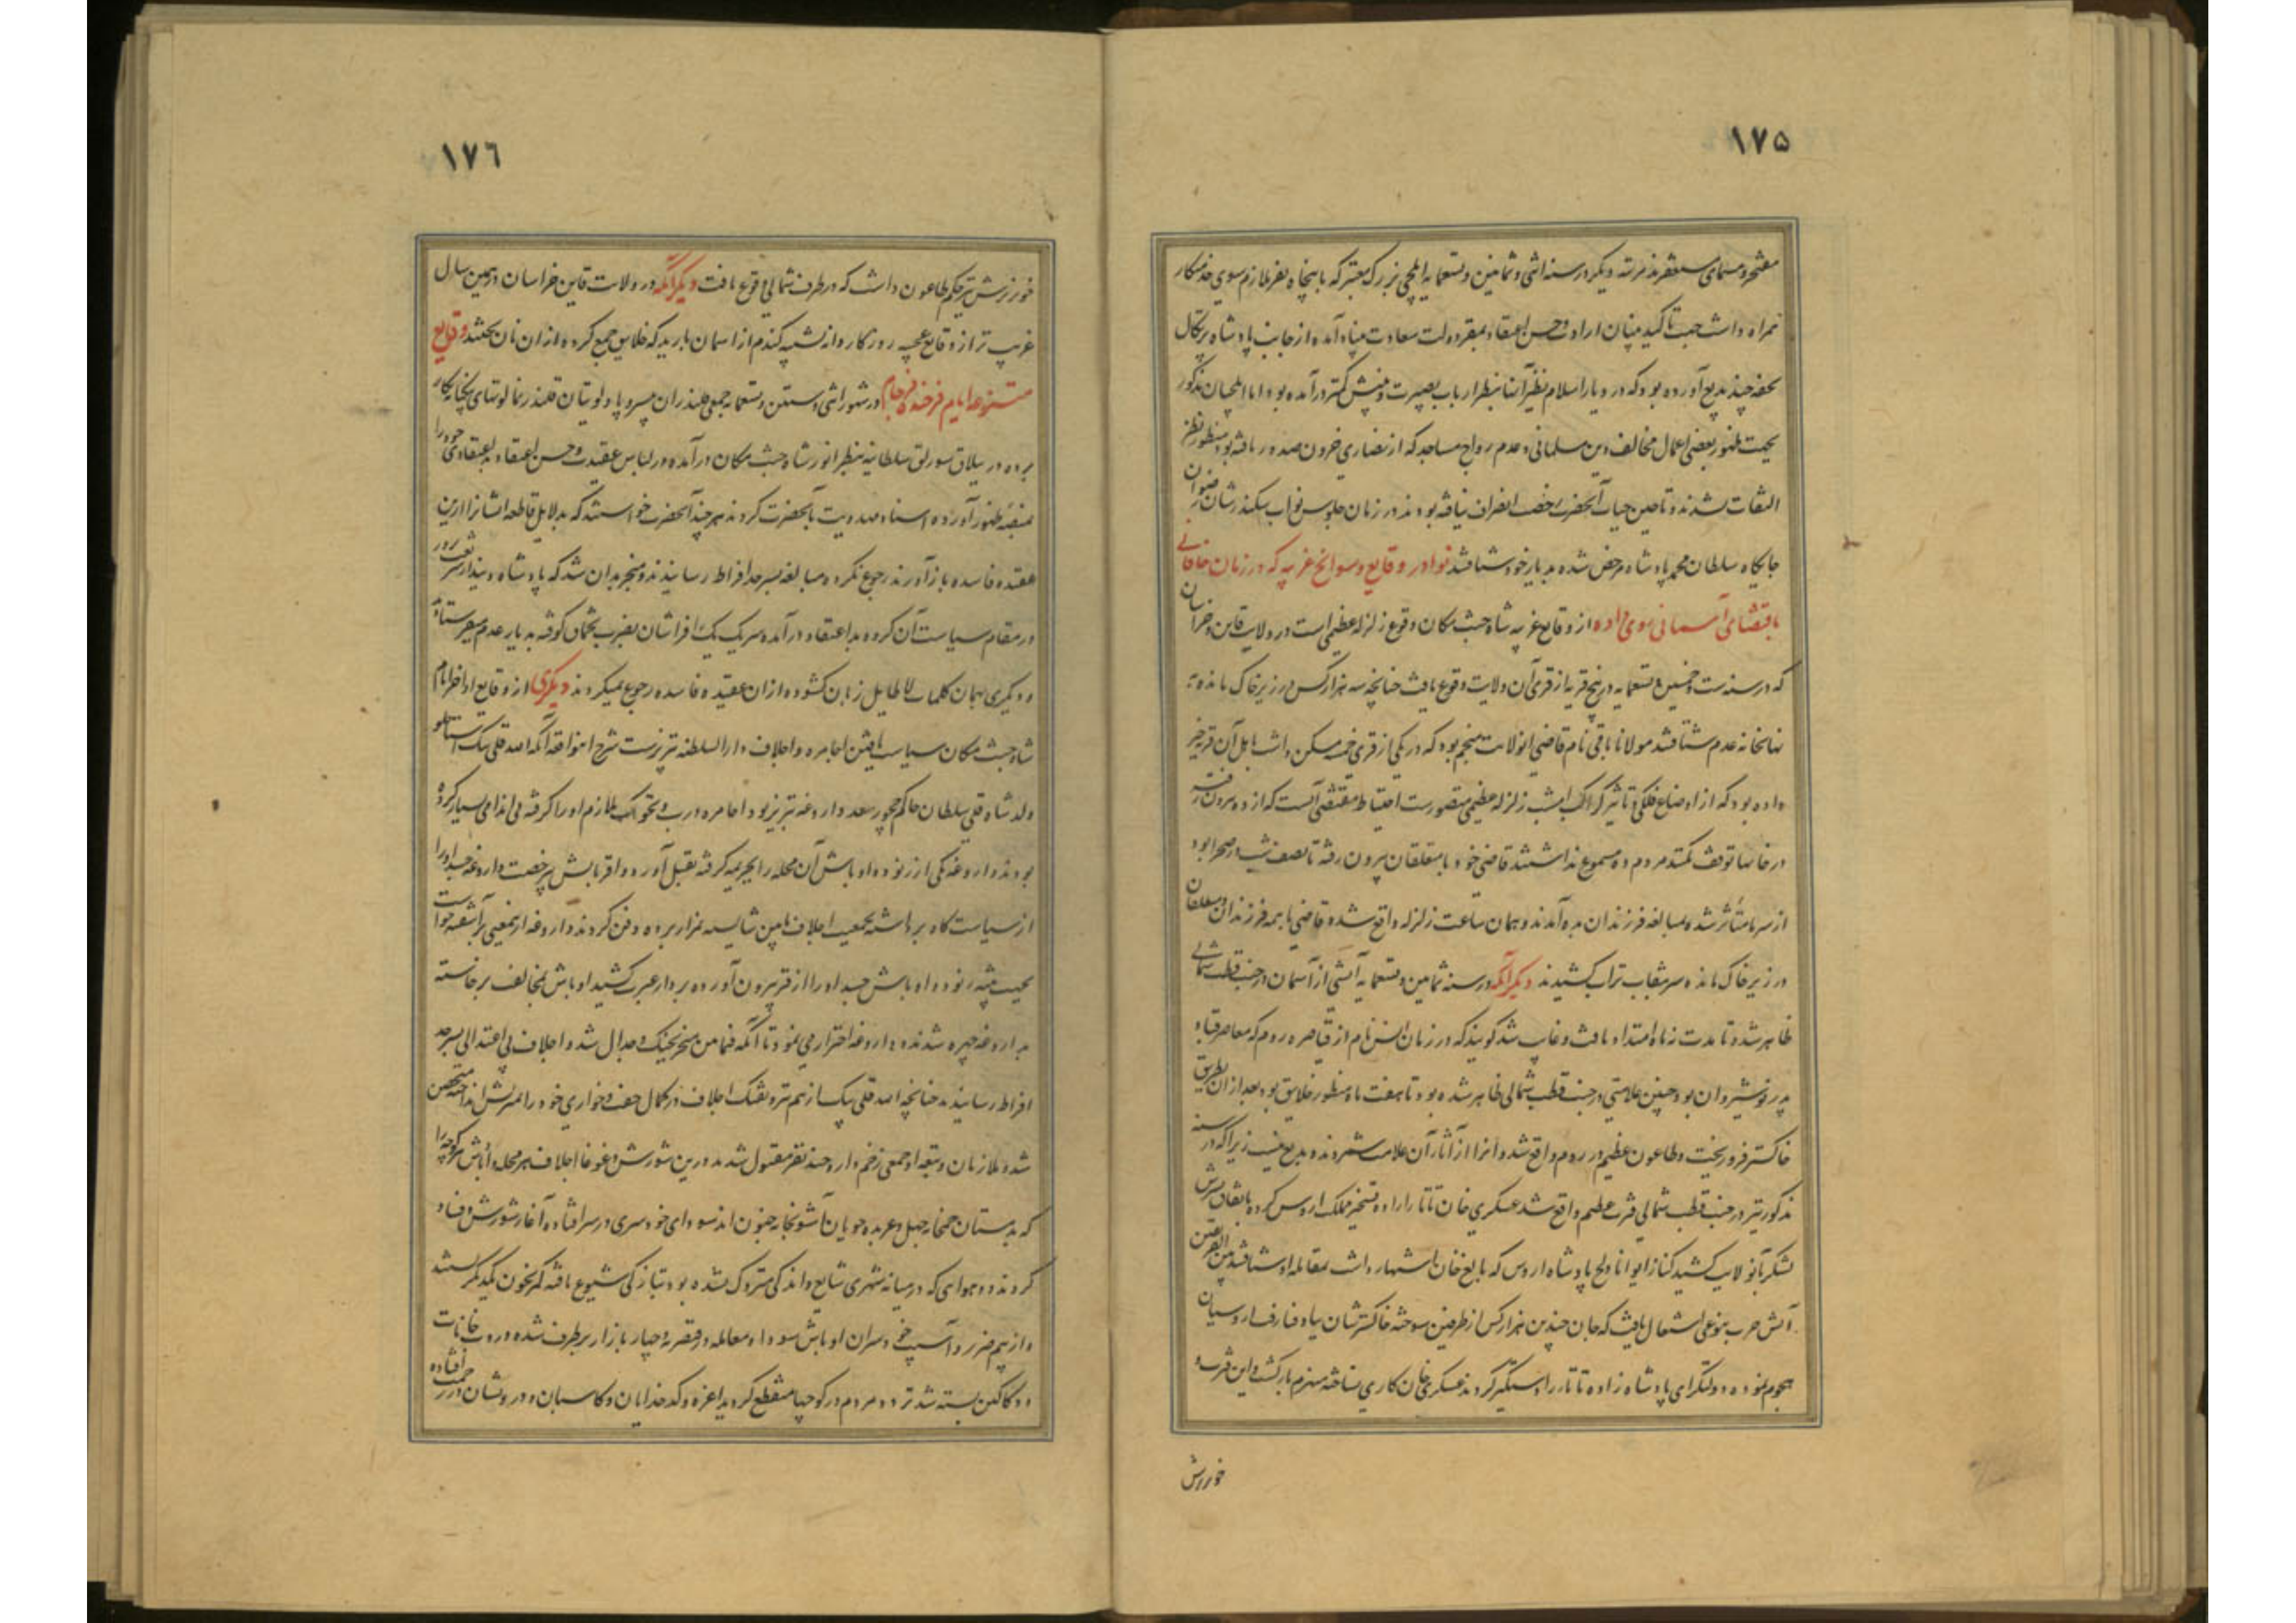 ۱۷۵
دیگر در سنه اثنی و ثمانین و تسعمایه ایلچی بزرگ معتبر که با پنجاه نفر ملازم سوی خدمتکار
همراه داشت جهت تاکید بنیان ارادت و حسن اعتقاد بمقر دولت سعادت پناه آمده از جانب پادشاه پرتکال
تحفه چند بدیع آورده بود که در دیار اسلام نظیر آنها بنظر ارباب بصیرت و بینش کمتر درآمده بود اما ایلچیان مذکور
بجهت ظهور بعضی اعمال مخالف دین مسلمانی و عدم رواج مساجد که از نصاری صدور یافته بود منظور نظر
التفات نشدند و تا حین حیات آنحضرت رخصت انصراف نیافته بودند در زمان جلوس نواب سکندر شان رضوان
جایگاه سلطان محمد پادشاه مرخص شده بدیار خود شتافتند نوادر وقایع و سوانح غریبه که در زمان خاقانی
باقتضای آسمانی روی داده از وقایع غریبه شاه جنت مکان وقوع زلزله عظیم است در ولایت قاین خراسان
که در سنه ست و خمسین و تسعمایه در پنج قریه از قری آن ولایت وقوع یافت چنانچه سه هزار کس در زیر خاک مانده به
نهانخانه عدم شتافتند مولانا باقی نام قاضی آنولایت منجم بود که در یکی از قری خمسه مسکن داشت اهل آن قریه خبر
داده بود که از اوضاع فلکی و تاثیر کواکب امشب زلزله عظیم متصورست احتیاط مقتضی آنست که از ده بیرون رفته
در خانها توقف نکنند مردم ده مسموع نداشتند قاضی خود با متعلقان بیرون رفته تا نصف شب در صحرا بود
از سرما متأثر شده بمبالغه فرزندان بده آمدند و همان ساعت زلزله واقع شده قاضی با همه فرزندان و متعلقان
در زیر خاک مانده سر بنقاب تراب کشیدند دیگر آنکه در سنه ثمانین و تسعمایه آتشی از آسمان در جنب قطب شمالی
ظاهر شد و تا مدت نه ماه امتداد یافت و غایب شد گویند که در زمان نام از قیاصره روم که معاصر قباد
پدر نوشیروان بود چنین علامتی در جنب قطب شمالی ظاهر شده بود تا هفت ماه منظور خلایق بود بعد از آن بطریق
خاکستر فرو ریخت و طاعون عظیم در روم واقع شد و آنرا از آثار آن علامت شمردند و بدیع نیست زیرا که در سنه
مذکور نیز در جنب قطب شمالی فترت عظیم واقع شد عسکری خان تاتار اراده تسخیر ممالک اروس کرده باتفاق پسرش
لشکر بآنولایت کشید پادشاه اروس که بالغ خان اشتهار داشت بمقابله او شتافته بین الطرفین
آتش حرب بنوعی اشتعال یافت که جان چندین هزار کس از طرفین سوخته خاکسترشان بباد فنا رفت اروسیان
هجوم نموده دولتکرای پادشاه زاده تاتار را دستگیر کردند عسکری خان کاری نساخته منهزم بازگشت و این فترت و
خونریزش
۱۷۶
خونریزش نیز حکم طاعون داشت که در طرف شمالی وقوع یافت دیگر آنکه در ولایت قاین خراسان در همین سال
غریب تر از وقایع عجیبه روزگار دانه شبیه گندم از آسمان بارید که خلایق جمع کرده از آن نان پختند وقایع
متنوعه ایام فرخنده فرجام در شهور اثنی و ستین و تسعمایه جمعی قلندران بی سر و پا و لوتیان قلندرنما
برده در ییلاق سورلق سلطانیه بنظر انور شاه جنت مکان درآمده در لباس عقیدت و حسن اعتقاد بد اعتقادی خود را
بمنصه ظهور آورده اسناد مهدویت بآنحضرت کردند هر چند آنحضرت خواستند که بدلایل قاطعه ایشانرا ازین
عقیده فاسده بازآورند رجوع نکرده مبالغه بسرحد افراط رسانیدند و منجر بدان شد که پادشاه دیندار شریعت پرور
در مقام سیاست آن گروه بد اعتقاد درآمده سر یک یک افراشان بضرب تخماق کوفته بدیار عدم میفرستاد
و دیگری بهمان کلمات لاطایل زبان گشوده از آن عقیده فاسده رجوع نمیکردند دیگری از وقایع اواخر ایام
شاه جنت مکان سیاست یافتن اجامره و اجلاف دارالسلطنه تبریزست شرح اینواقعه آنکه قلی بیک استاجلو
ولد شاه قلی سلطان حاکم چخور سعد داروغه تبریز بود اجامره درب ملازم او را گرفته بی اندامی بسیار کرده
بودند داروغه یکی از رنود و اوباش آن محله را بجریمه گرفته بقتل آورد و اقربایش بیرخصت داروغه جسد او را
از سیاست گاه برداشته بجمعیت اجلاف بآیین شایسته بمزار برده دفن کردند داروغه ازینمعنی برآشفته خواست
بجهت تنبیه رنود و اوباش جسد او را از قبر بیرون آورده بر دار عبرت کشید اوباش بمخالفت برخاسته
بداروغه خیره شدند و داروغه احتراز می نمود تا آنکه فیمابین منجر بجنگ و جدال شد و اجلاف بی اعتدالی بسرحد
افراط رسانیدند چنانچه قلی بیک از بیم تیر و تفنگ اجلاف در کمال خفت و خواری خود را بمنزلش انداخته متحصن
شد و ملازمان و تبعه او جمعی زخم دار و چند نفر مقتول شدند درین شورش و غوغا اجلاف هر محله و اوباش هر کوچه را
که بدمستان خمخانه جهل و عربده جویان آشوبخانه جنون اند سودای خودسری در سر افتاده آغاز شورش و فساد
کردند و دو هوایی که در میانه شهری شایع و اندکی متروک شده بود بتازگی شیوع یافته کمر بخون یکدیگر بستند
و از بیم ضرر و آسیب خودسران اوباش سودا و معامله در قیصریه و چهار بازار برطرف شده دروب خانات
و دکاکین بسته شد تردد مردم در کوچها منقطع گردید اعزه و کدخدایان و کاسبان و درویشان در زحمت افتاده